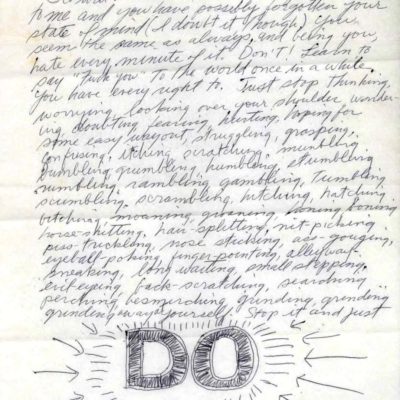 to me and you have possibly forgotten your
state of mind (I doubt it though). You
seem the same as always, and being you,
hate every minute of it. Don't! Learn to
say "Fuck You" to the world once in a while.
You have every right to. Just stop thinking,
worrying, looking over your shoulder, wonder-
ing, doubting, fearing, hurting, hoping for
some easy way out, struggling, grasping,
confusing, itching, scratching, mumbling,
bumbling, grumbling, humbling, stumbling,
numbling, rambling, gambling, tumbling,
scumbling, scrambling, hitching, hatching,
bitching, moaning, groaning, honing, boning,
horse-shitting, hair-splitting, nit-picking,
piss-trickling, nose sticking, ass-gouging,
eyeball-poking, finger-pointing, alleyway-
sneaking, long waiting, small stepping,
evil-eyeing, back-scratching, searching,
perching, besmirching, grinding, grinding,
grinding away at yourself! Stop it and just
DO